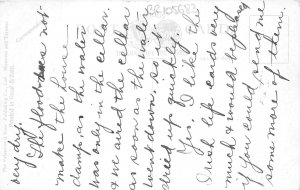 very dry.
The flood does not
make the home
damp as the water
was only in the cellar.
& we aired the cellar
as soon as the water
went down, so it
dried up quickly.
Yes, I like the
Irish life cards very
much & would
if you could send me
some more of them.
BR105683